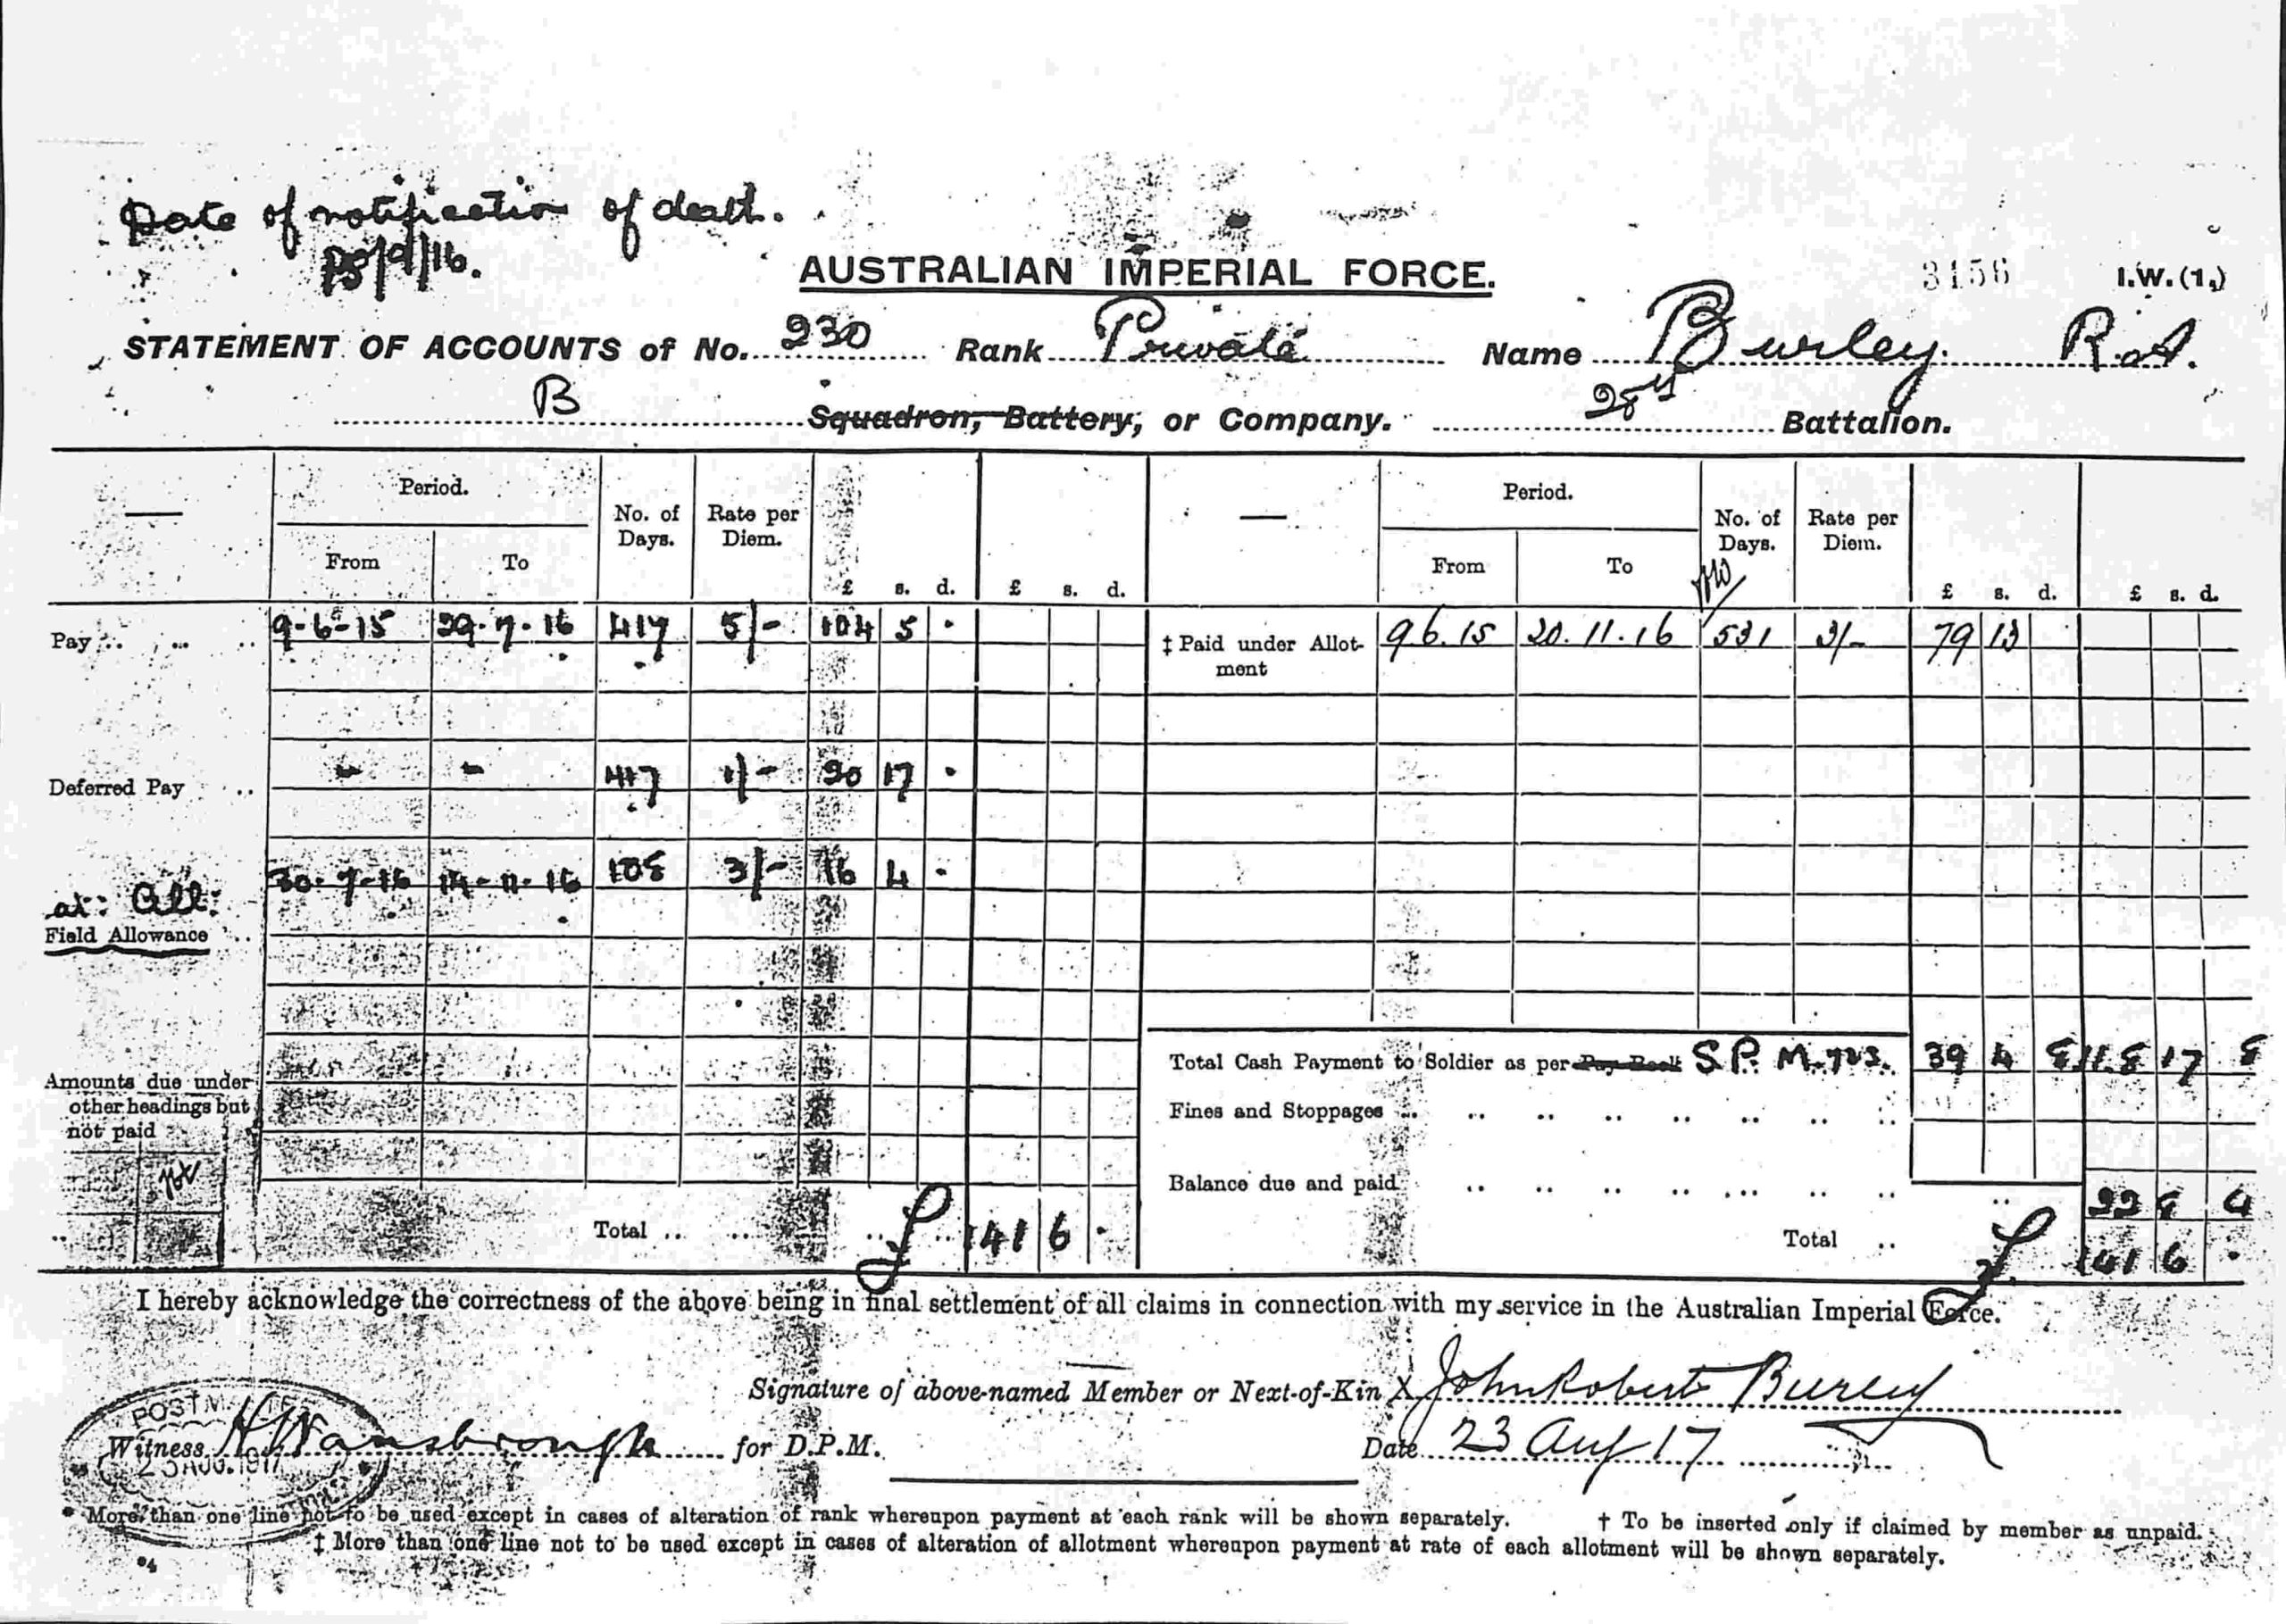 Date of notification of death.
/9/16.
AUSTRALIAN IMPERIAL FORCE.
3156 I.W. (1.)
STATEMENT OF ACCOUNTS of No. 230 Rank Private Name Burley. R.A.
B Squadron, Battery, or Company. 28th Battalion.
— Period. No. of Days. Rate per Diem. £ s. d. £ s. d. — Period. No. of Days. Rate per Diem. £ s. d. £ s. d.
From To From To
Pay .. .. .. 9-6-15 29-7-16 417 5/- 104 5 · ‡ Paid under Allotment 9.6.15 20.11.16 531 3/- 79 13
Deferred Pay .. " " 417 1/- 20 17 ·
at: All: 30-7-16 14-11-16 108 3/- 16 4 ·
Field Allowance ..
Total Cash Payment to Soldier as per Pay Book S.P. M.723. 39 4 8 118 17 8
Amounts due under other headings but not paid
Fines and Stoppages .. .. .. .. .. .. .. ..
Balance due and paid .. .. .. .. .. .. .. 22 8 4
Total .. .. .. £ 141 6 · Total .. £ 141 6 ·
I hereby acknowledge the correctness of the above being in final settlement of all claims in connection with my service in the Australian Imperial Force.
Signature of above-named Member or Next-of-Kin X John Robert Burley
Witness H Wansbrough for D.P.M. Date 23 Aug 17
23 AUG. 1917
* More than one line not to be used except in cases of alteration of rank whereupon payment at each rank will be shown separately. † To be inserted only if claimed by member as unpaid.
‡ More than one line not to be used except in cases of alteration of allotment whereupon payment at rate of each allotment will be shown separately.